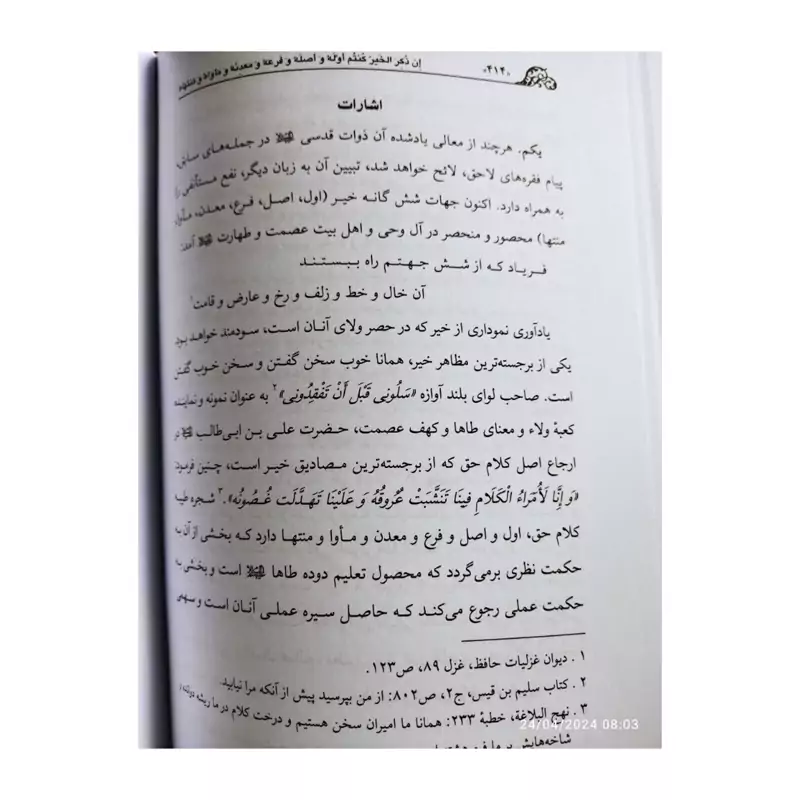 «۴۱۴»
إن ذُکر الخیر کنتم أوّله و أصله و فرعه و معدنه و
اشارات
یکم. هرچند از معالی یادشده آن ذوات قدسی در جمله‌های سابق،
پیام فقره‌های لاحق، لائح خواهد شد، تبیین آن به زبان دیگر، نفع مستأنفی را
به همراه دارد. اکنون جهات شش گانه خیر (اول، اصل، فرع، معدن، مأوا،
منتها) محصور و منحصر در آل وحی و اهل بیت عصمت و طهارت آمد:
فریاد که از شش جهتم راه ببستند
آن خال و خط و زلف و رخ و عارض و قامت۱
یادآوری نموداری از خیر که در حصر ولای آنان است، سودمند خواهد بود.
یکی از برجسته‌ترین مظاهر خیر، همانا خوب سخن گفتن و سخن خوب گفتن
است. صاحب لوای بلند آوازه «سَلُونی قَبْلَ أَنْ تَفْقِدُونی»۲ به عنوان نمونه و نماینده
کعبهٔ ولاء و معنای طاها و کهف عصمت، حضرت علی بن ابی‌طالب در
ارجاع اصل کلام حق که از برجسته‌ترین مصادیق خیر است، چنین فرمود:
«وَ إِنَّا لَأُمَرَاءُ الْکَلَامِ فِینَا تَنَشَّبَتْ عُرُوقُهُ وَ عَلَیْنَا تَهَدَّلَت غُصُونُه».۳ شجره طیبه
کلام حق، اول و اصل و فرع و معدن و مأوا و منتها دارد که بخشی از آن به
حکمت نظری برمی‌گردد که محصول تعلیم دوده طاها است و بخشی به
حکمت عملی رجوع می‌کند که حاصل سیره عملی آنان است و سهمی
۱ . دیوان غزلیات حافظ، غزل ۸۹، ص۱۲۳.
۲ . کتاب سلیم بن قیس، ج۲، ص۸۰۲: از من بپرسید پیش از آنکه مرا نیابید.
۳ . نهج البلاغة، خطبهٔ ۲۳۳: همانا ما امیران سخن هستیم و درخت کلام در ما ریشه دوانده و
شاخه‌هایش بر ما
24/04/2024 08:03